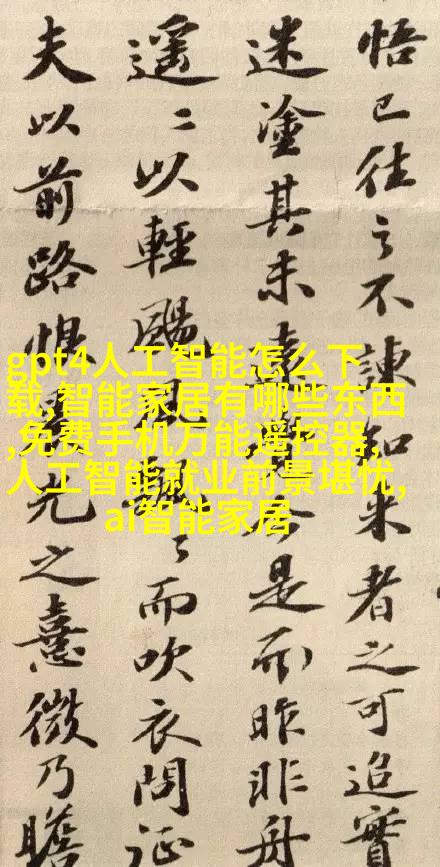 悟已往之不諫知来者之可追實
迷塗其未遠今是而昨非舟
遥〻以輕颺風〻而吹衣問征
夫以前路恨光之熹微乃瞻
gpt4人工智能怎么下
载,智能家居有哪些东西
,免费手机万能遥控器,
人工智能就业前景堪忧,
ai智能家居